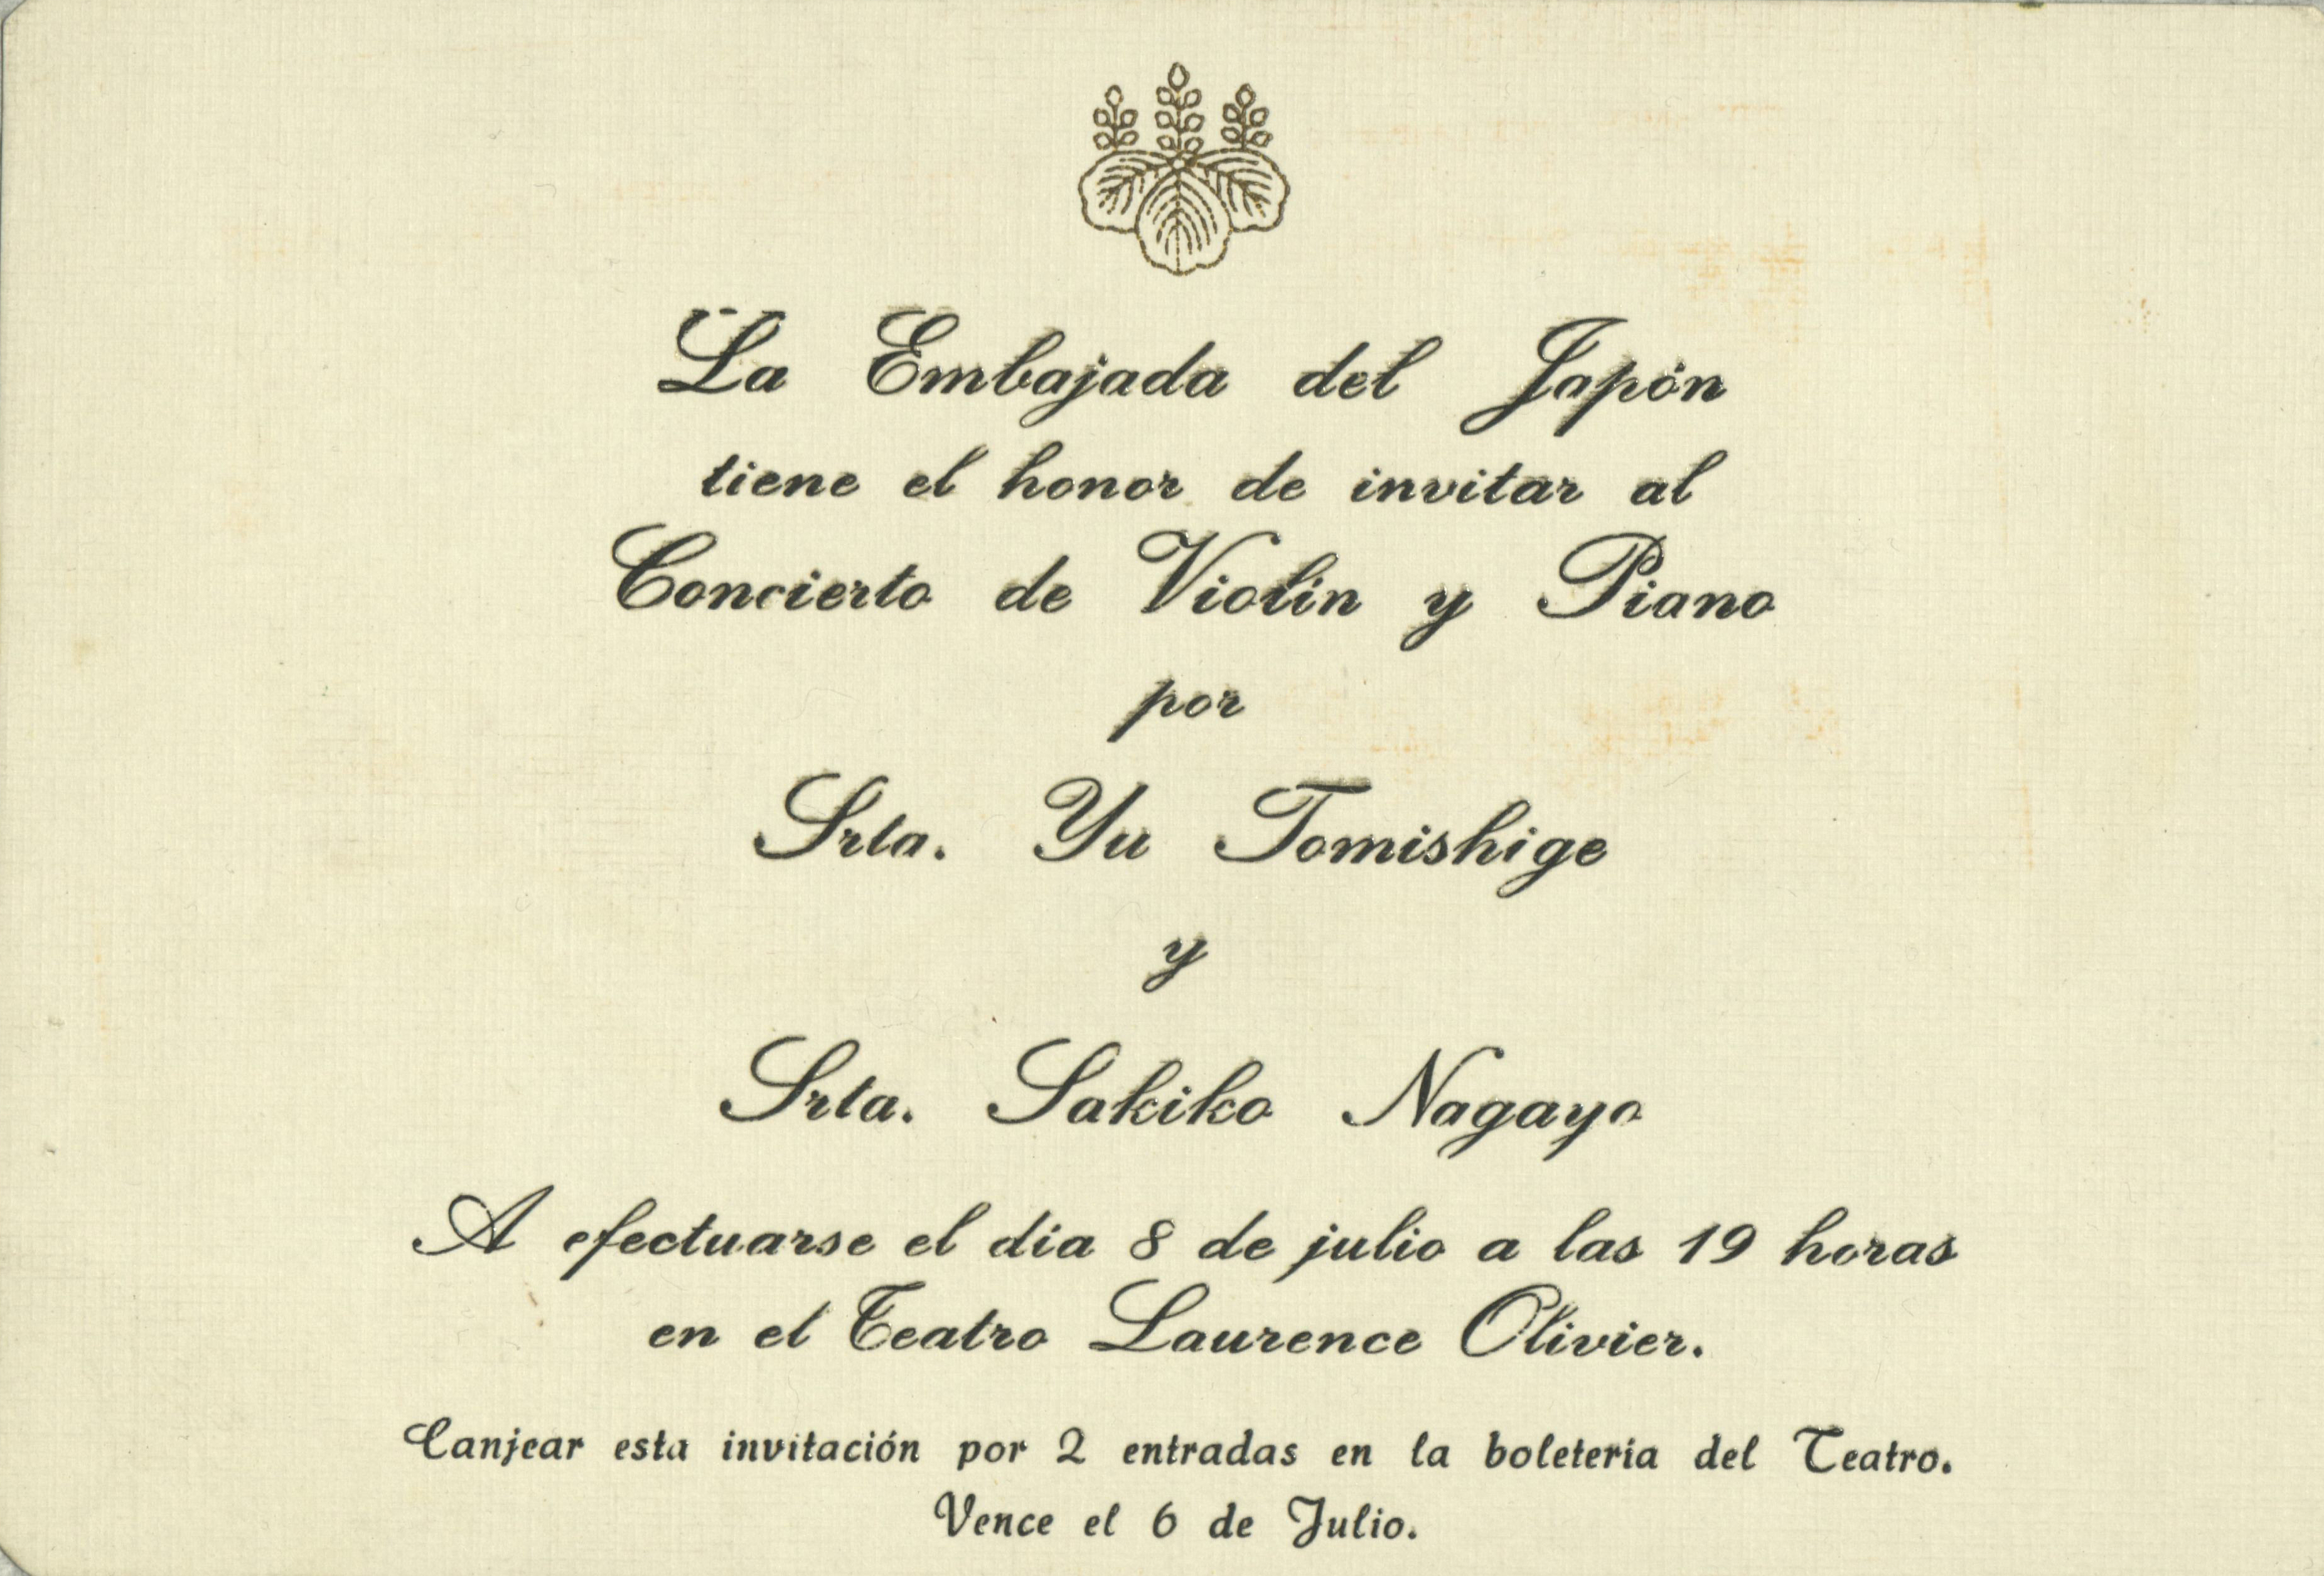 La Embajada del Japón
tiene el honor de invitar al
Concierto de Violín y Piano
por
Srta. Yu Tomishige
y
Srta. Sakiko Nagaya
A efectuarse el día 8 de julio a las 19 horas
en el Teatro Laurence Olivier.
Canjear esta invitación por 2 entradas en la boletería del Teatro.
Vence el 6 de Julio.